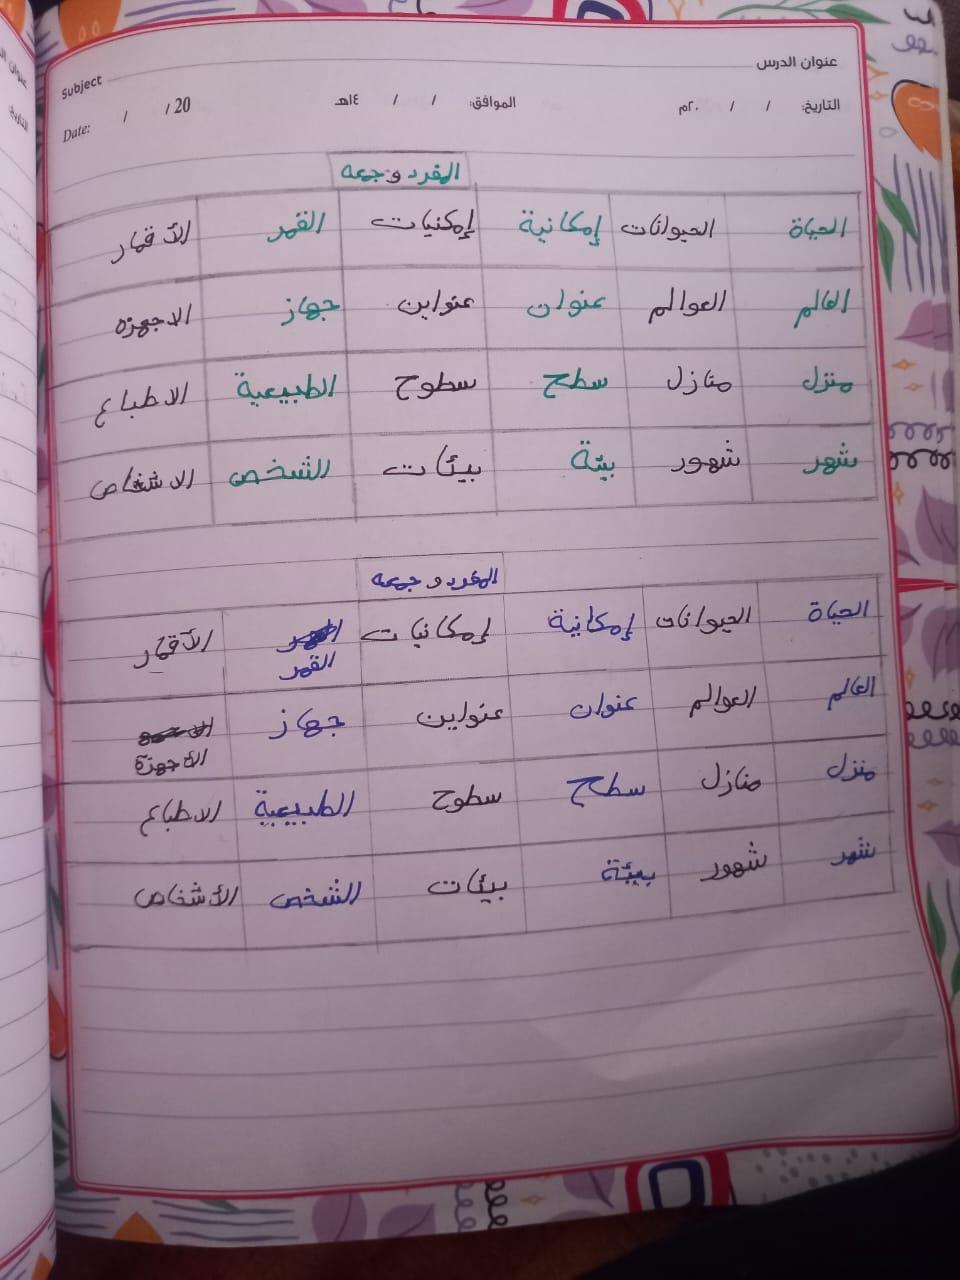 عنوان الدرس Subject
التاريخ: / / ٢٠م الموافق: / / ١٤هـ Date: / / 20
المفرد وجمعه
الحياة الحيوانات إمكانية إمكنيات القمر الأقمار
العالم العوالم عنوان عنواين جهاز الاجهزه
منزل منازل سطح سطوح الطبيعية الاطباع
شهر شهور بيئة بيئات الشخص الاشخاص
المفرد وجمعه
الحياة الحيوانات إمكانية إمكانيات القمر الأقمار
العالم العوالم عنوان عنواين جهاز الأجهزة
منزل منازل سطح سطوح الطبيعية الاطباع
شهر شهور بيئة بيئات الشخص الأشخاص